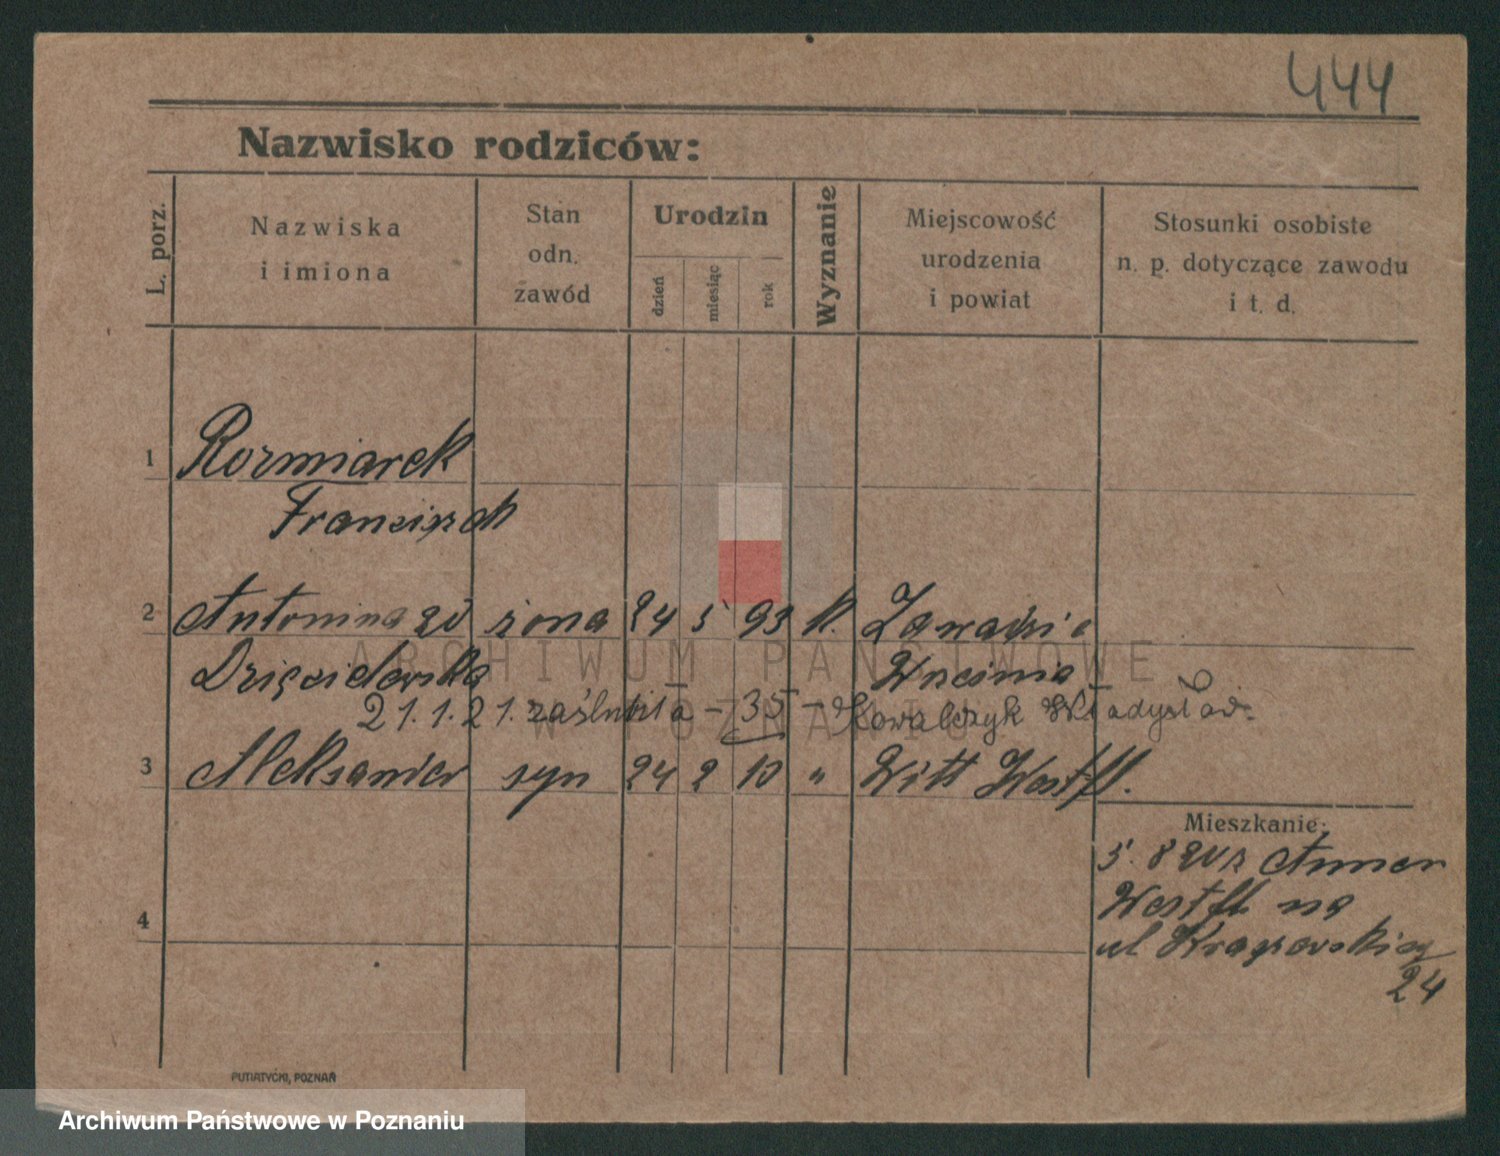 444
Nazwisko rodziców:
L. porz.
Nazwiska
i imiona
Stan
odn.
zawód
Urodzin
dzień
miesiąc
rok
Wyznanie
Miejscowość
urodzenia
i powiat
Stosunki osobiste
n. p. dotyczące zawodu
i t. d.
1 Rozmiarek
Franciszek
2 Antonina żona 24 5 93 k.
ARCHIWUM PAŃSTWOWE
W POZNANIU
21.1.21. zaślubiła - 35 - Kowalczyk Władysław
3 Aleksander syn 24 2 10 " Witt Westfl.
Mieszkanie:
5. 8
Westfl. na
ul
24
4
PUTIATYCKI, POZNAŃ
Archiwum Państwowe w Poznaniu